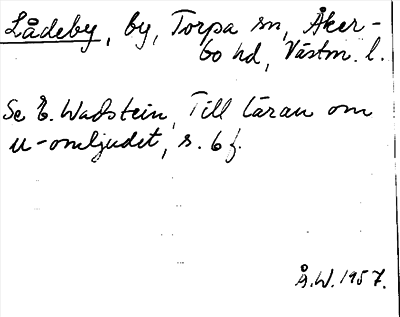 Lådeby, by, Torpa sn, Åker-
bo hd, Västm. l.
Se E. Wadstein, Till läran om
u-omljudet, s. 6 f.
Å.W. 1957.